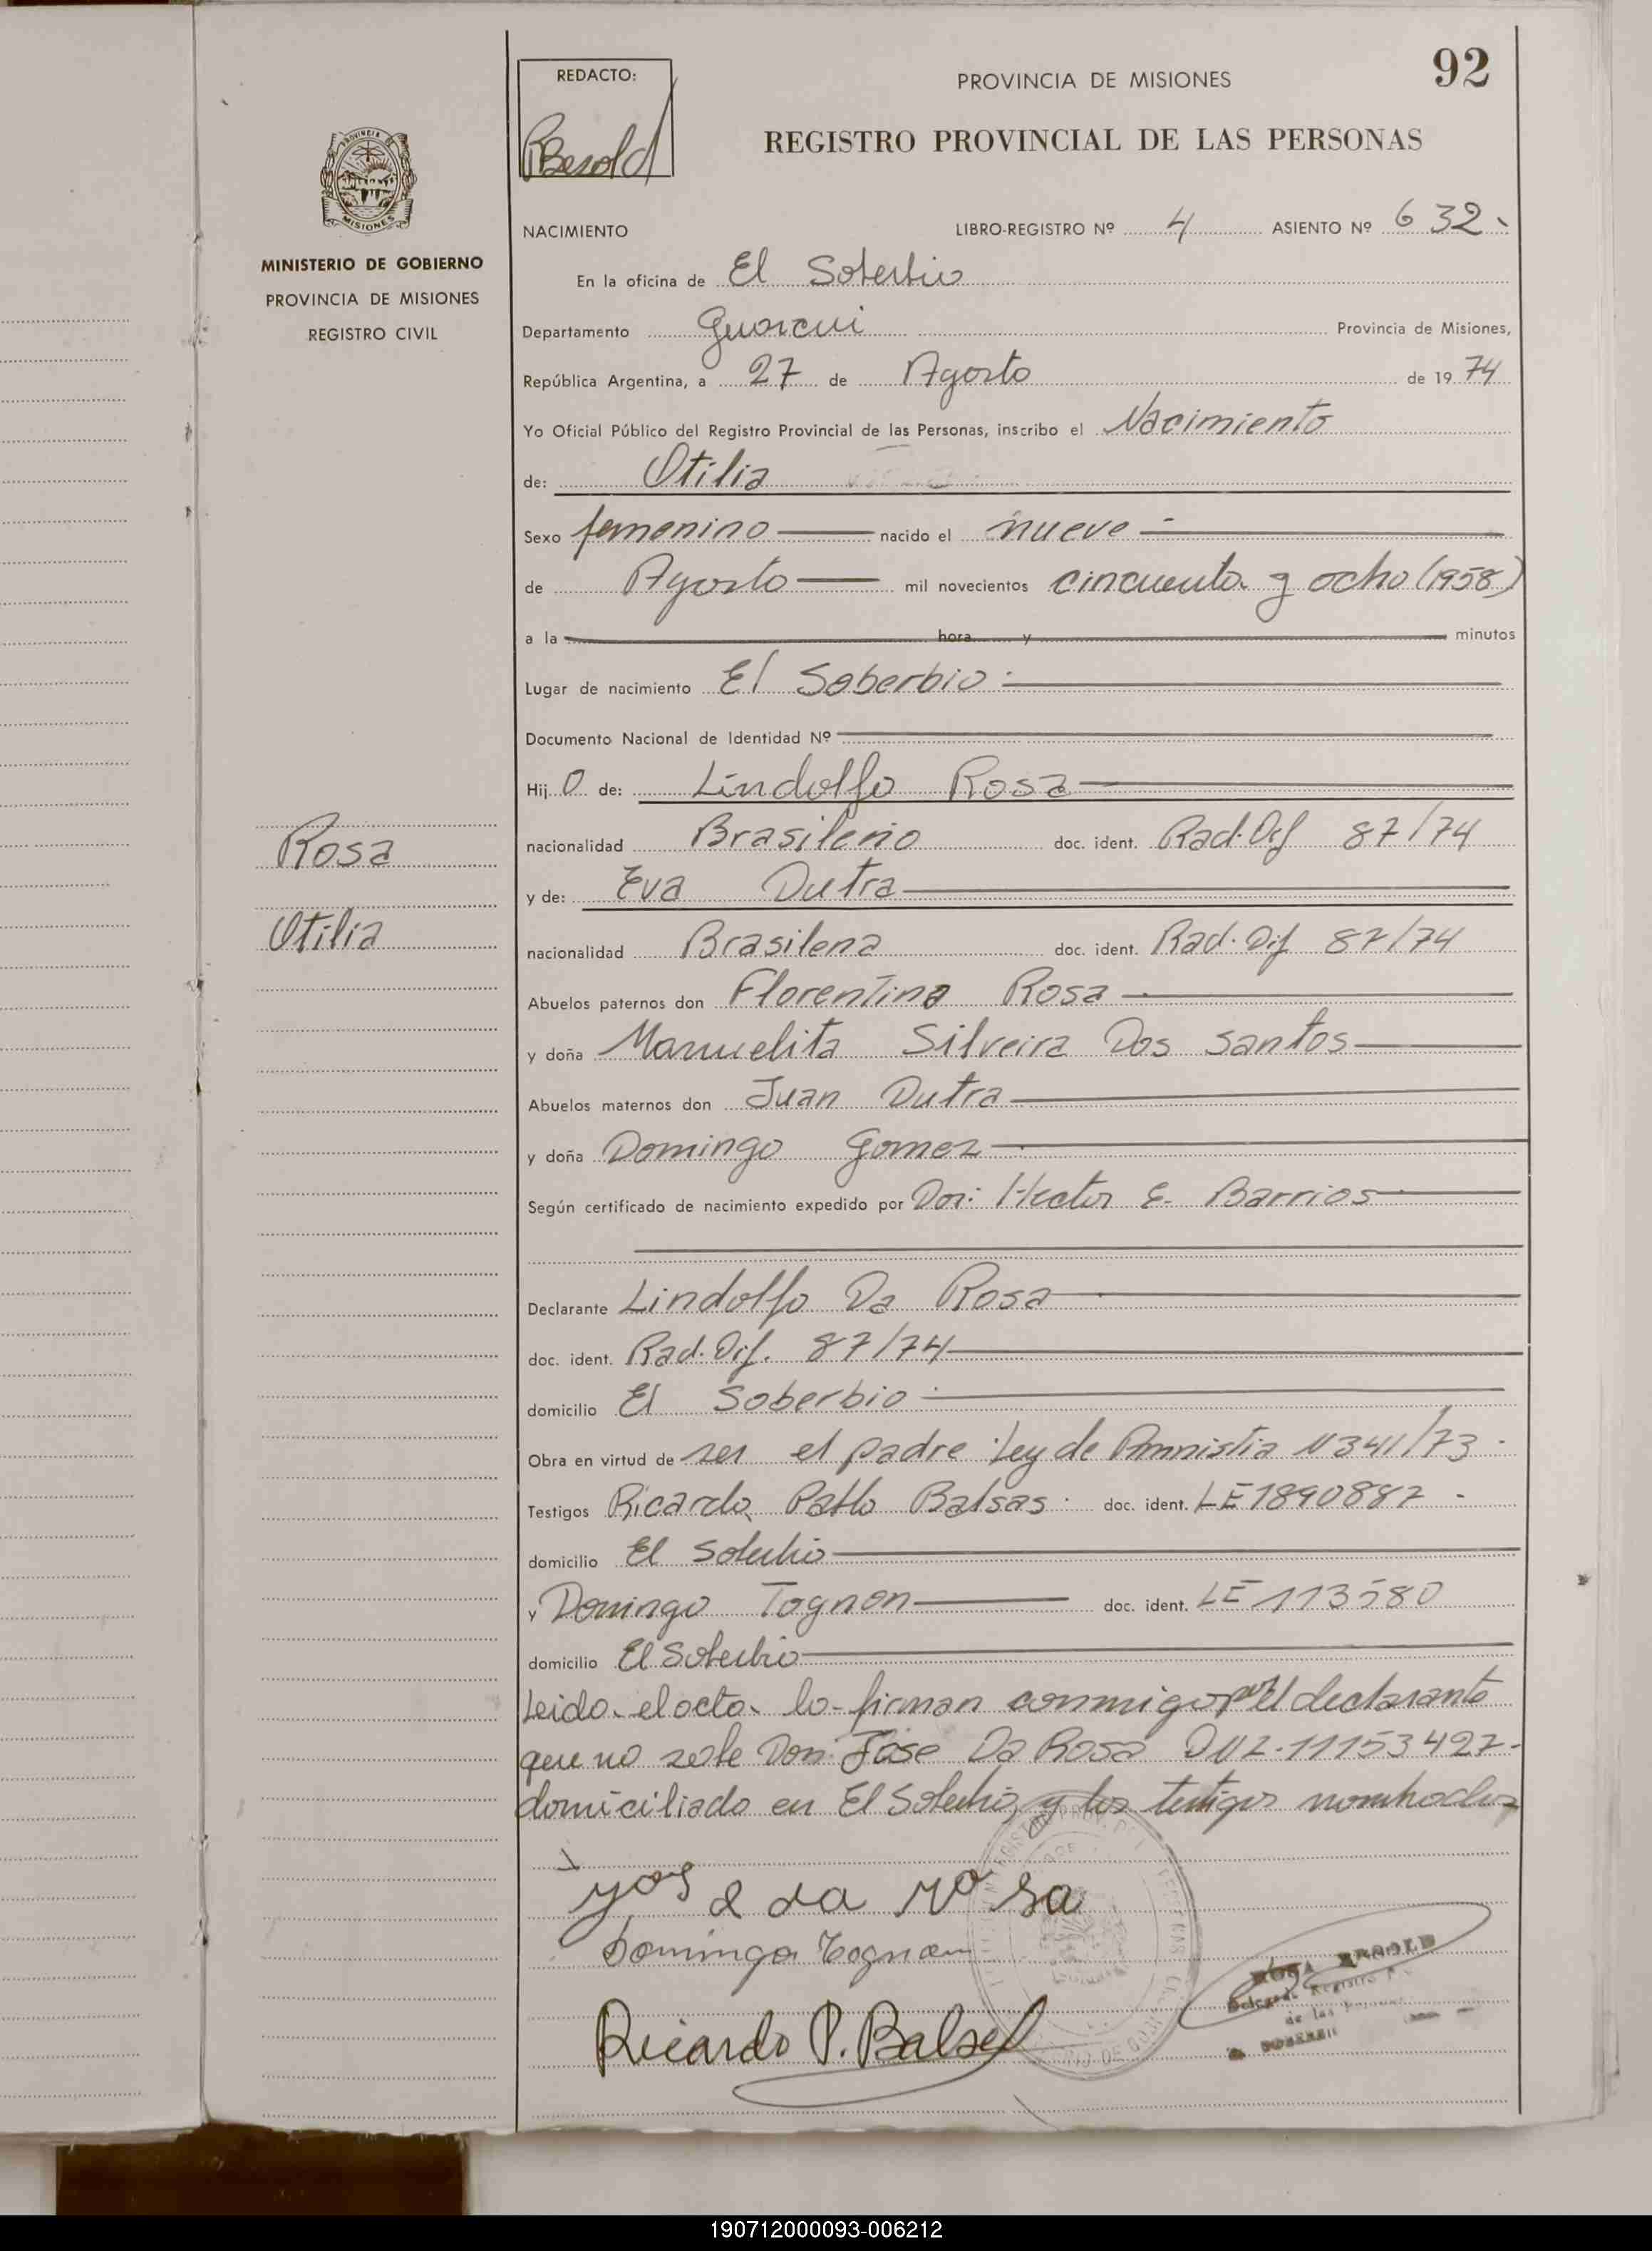 92
REDACTO:
RBesold
PROVINCIA DE MISIONES
REGISTRO PROVINCIAL DE LAS PERSONAS
PROVINCIA
MISIONES
MINISTERIO DE GOBIERNO
PROVINCIA DE MISIONES
REGISTRO CIVIL
NACIMIENTO LIBRO-REGISTRO Nº 4 ASIENTO Nº 632
En la oficina de El Soberbio
Departamento Guarani Provincia de Misiones,
República Argentina, a 27 de Agosto de 19 74
Yo Oficial Público del Registro Provincial de las Personas, inscribo el Nacimiento
de: Otilia
Sexo femenino nacido el nueve
de Agosto mil novecientos cincuenta y ocho (1958)
a la hora y minutos
Lugar de nacimiento El Soberbio
Documento Nacional de Identidad Nº
Hij O de: Lindolfo Rosa
nacionalidad Brasileño doc. ident. Rad. Dif 87/74
y de: Eva Dutra
nacionalidad Brasilena doc. ident. Rad. Dif 87/74
Rosa
Otilia
Abuelos paternos don Florentino Rosa
y doña Manuelita Silveira Dos Santos
Abuelos maternos don Juan Dutra
y doña Domingo Gomez
Según certificado de nacimiento expedido por Dor: Hector E. Barrios
Declarante Lindolfo Da Rosa
doc. ident. Rad. Dif. 87/74
domicilio El Soberbio
Obra en virtud de ser el padre Ley de Amnistia N 341/73
Testigos Ricardo Pablo Balsas doc. ident. LE 1890887
domicilio El Soberbio
y Domingo Tognon doc. ident. LE 113580
domicilio El Soberbio
Leido el acta lo firman conmigo por el declarante
que no sabe Don José Da Rosa DNI 11153427
domiciliado en El Soberbio, y los testigos nombrados
yose da rosa
Domingo Tognon
Ricardo P. Balsa
ROSA BESOLD
Delegada Registro
de las
190712000093-006212